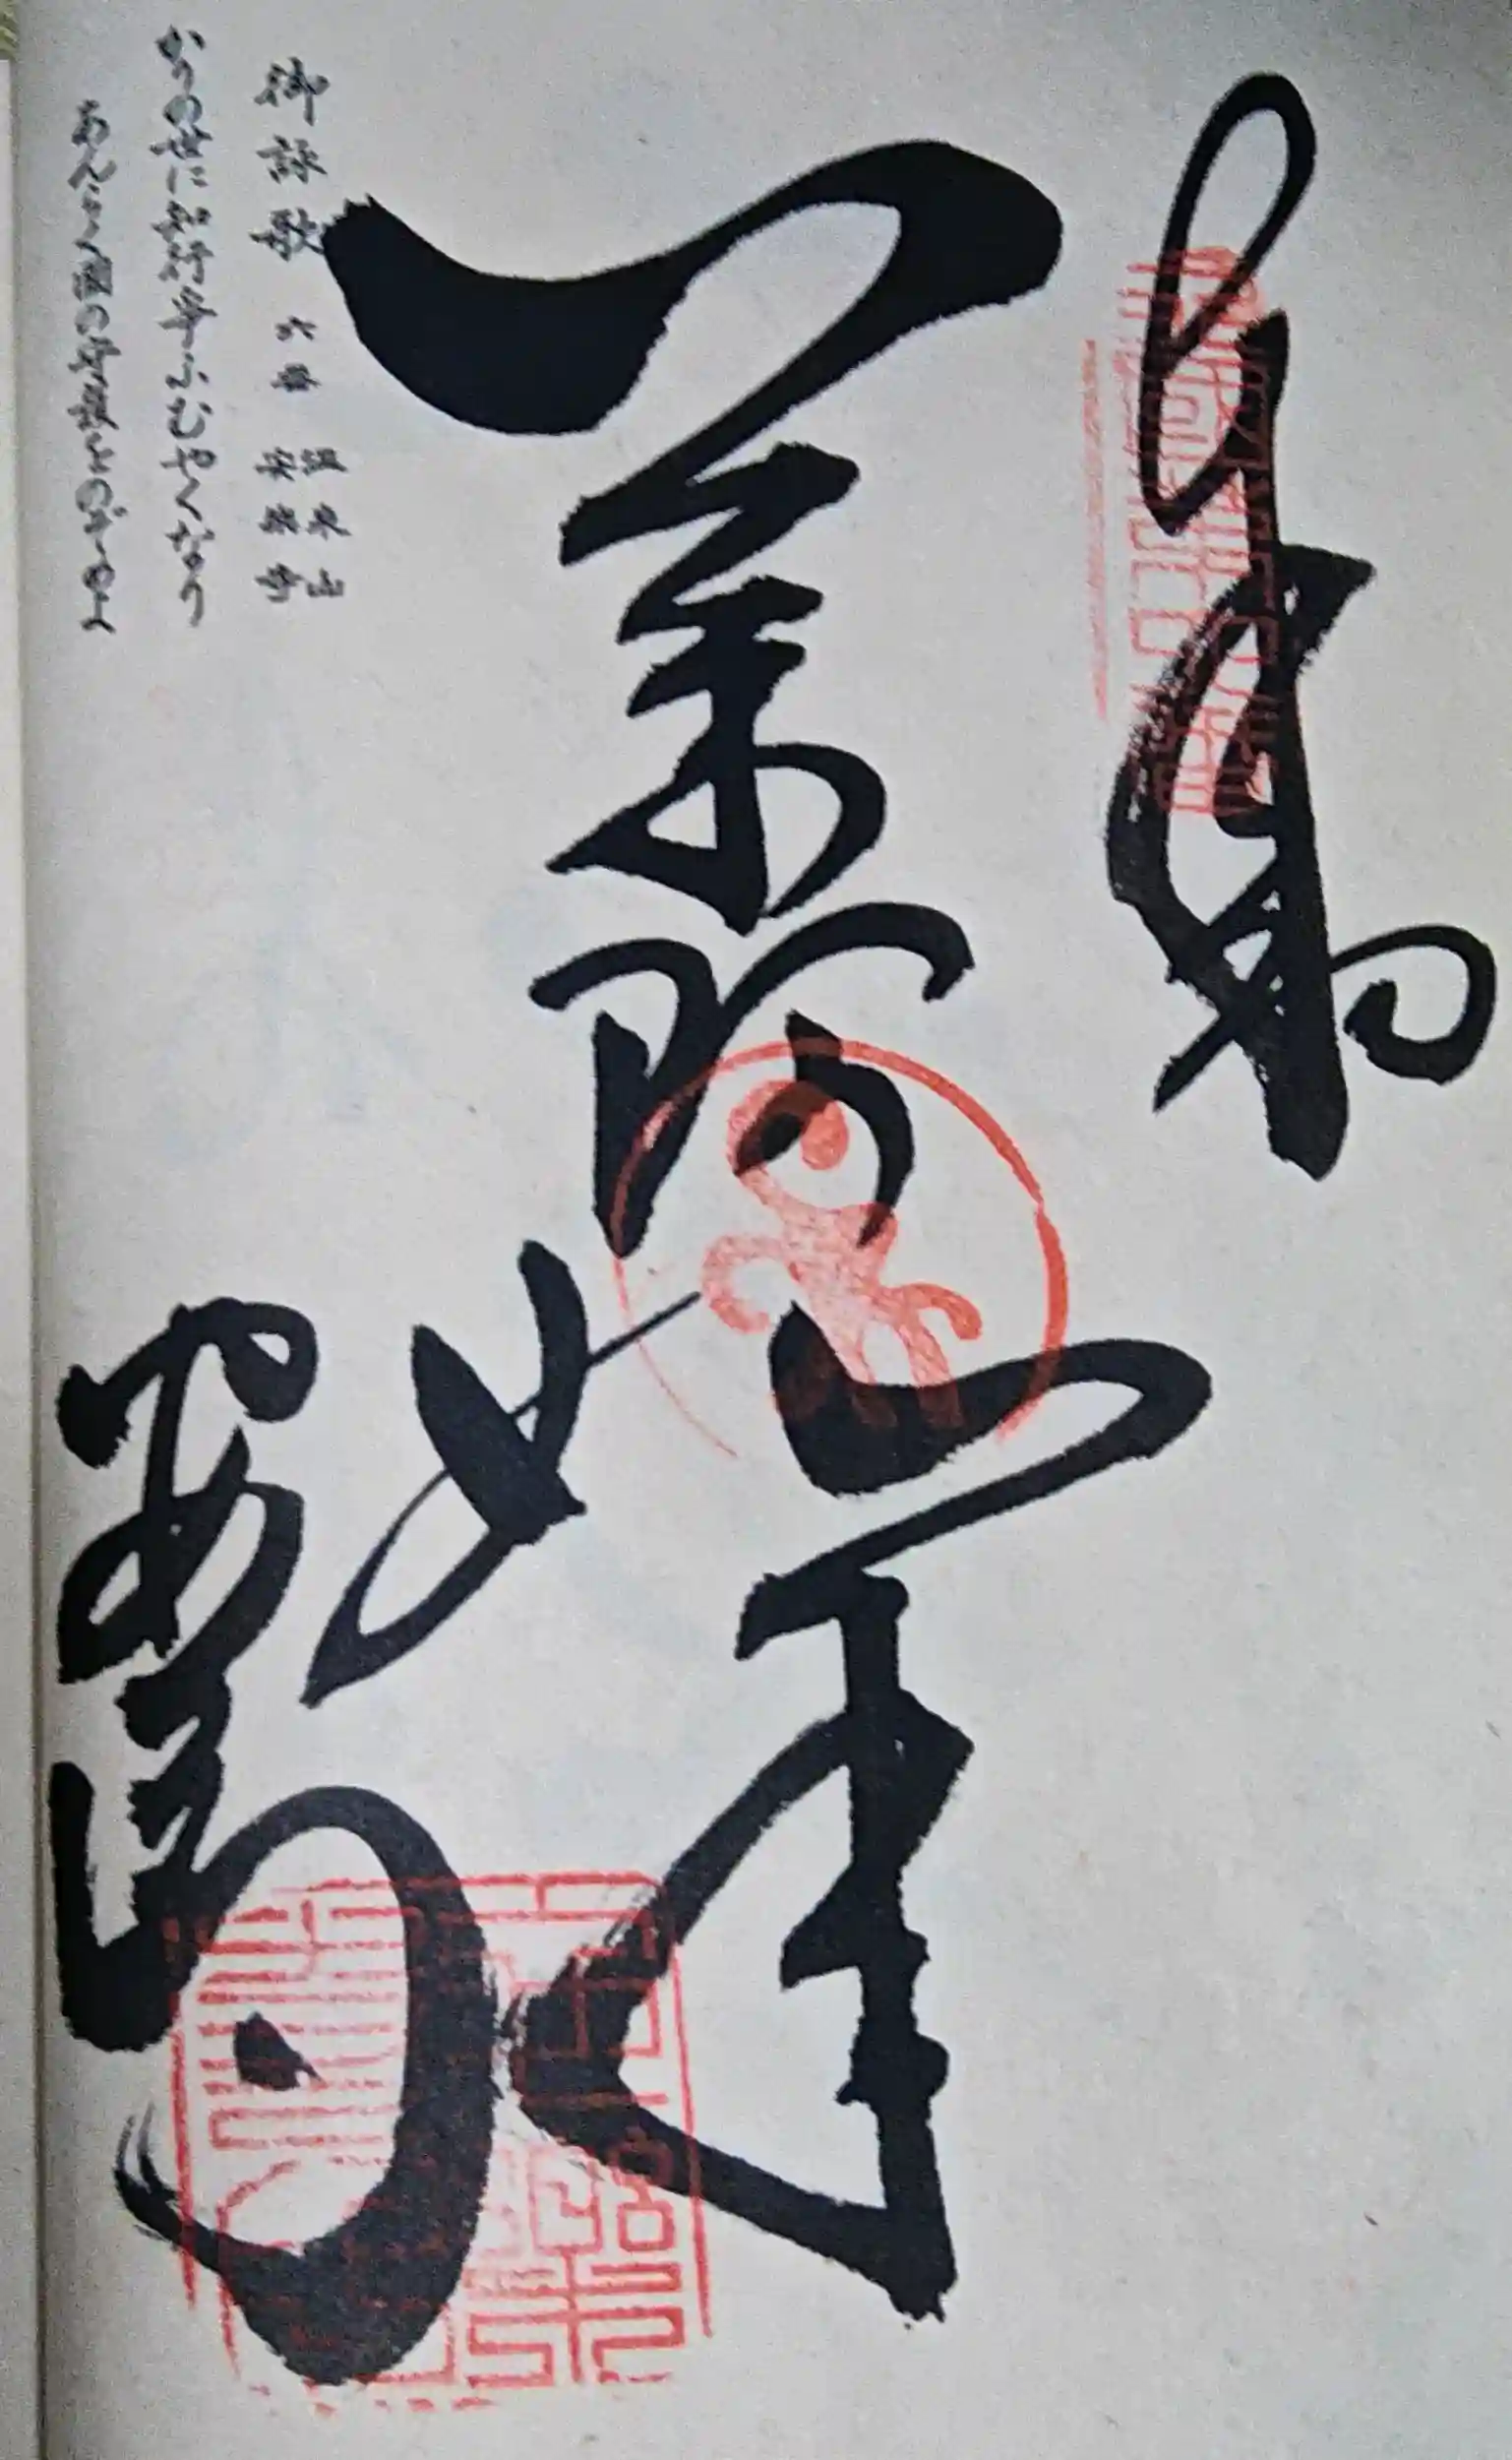 奉納
薬師如来
安楽寺
御詠歌 六番 温泉山 安楽寺
かりの世に知行争ふむやくなり
あんらく国の守護をのぞめよ